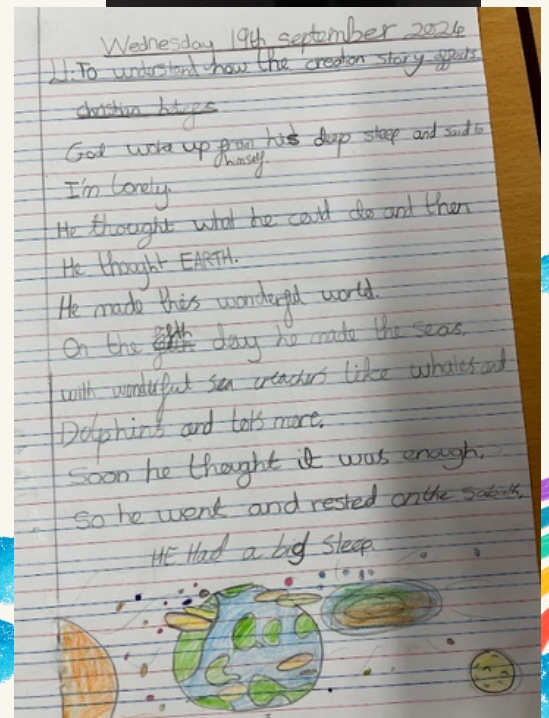 Wednesday 19th september 2024
LI: To understand how the creation story affects
christian
God woke up from his deep sleep and said to
himself
I'm lonely.
He thought what he could do and then
He thought EARTH.
He made this wonderful world.
On the day he made the seas,
with wonderful sea creachurs like whales and
Dolphins and lots more.
Soon he thought it was enough.
So he went and rested on the
HE Had a big Sleep.